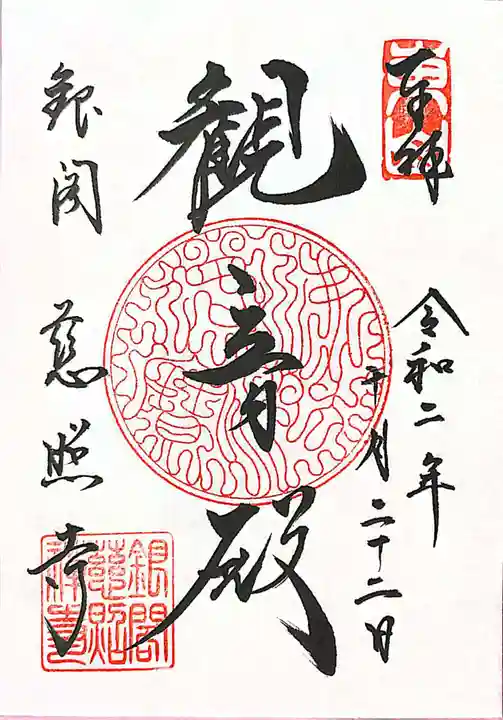 奉拝
令和二年
十月二十二日
観音殿
銀閣 慈照寺
銀閣
慈照
禅寺